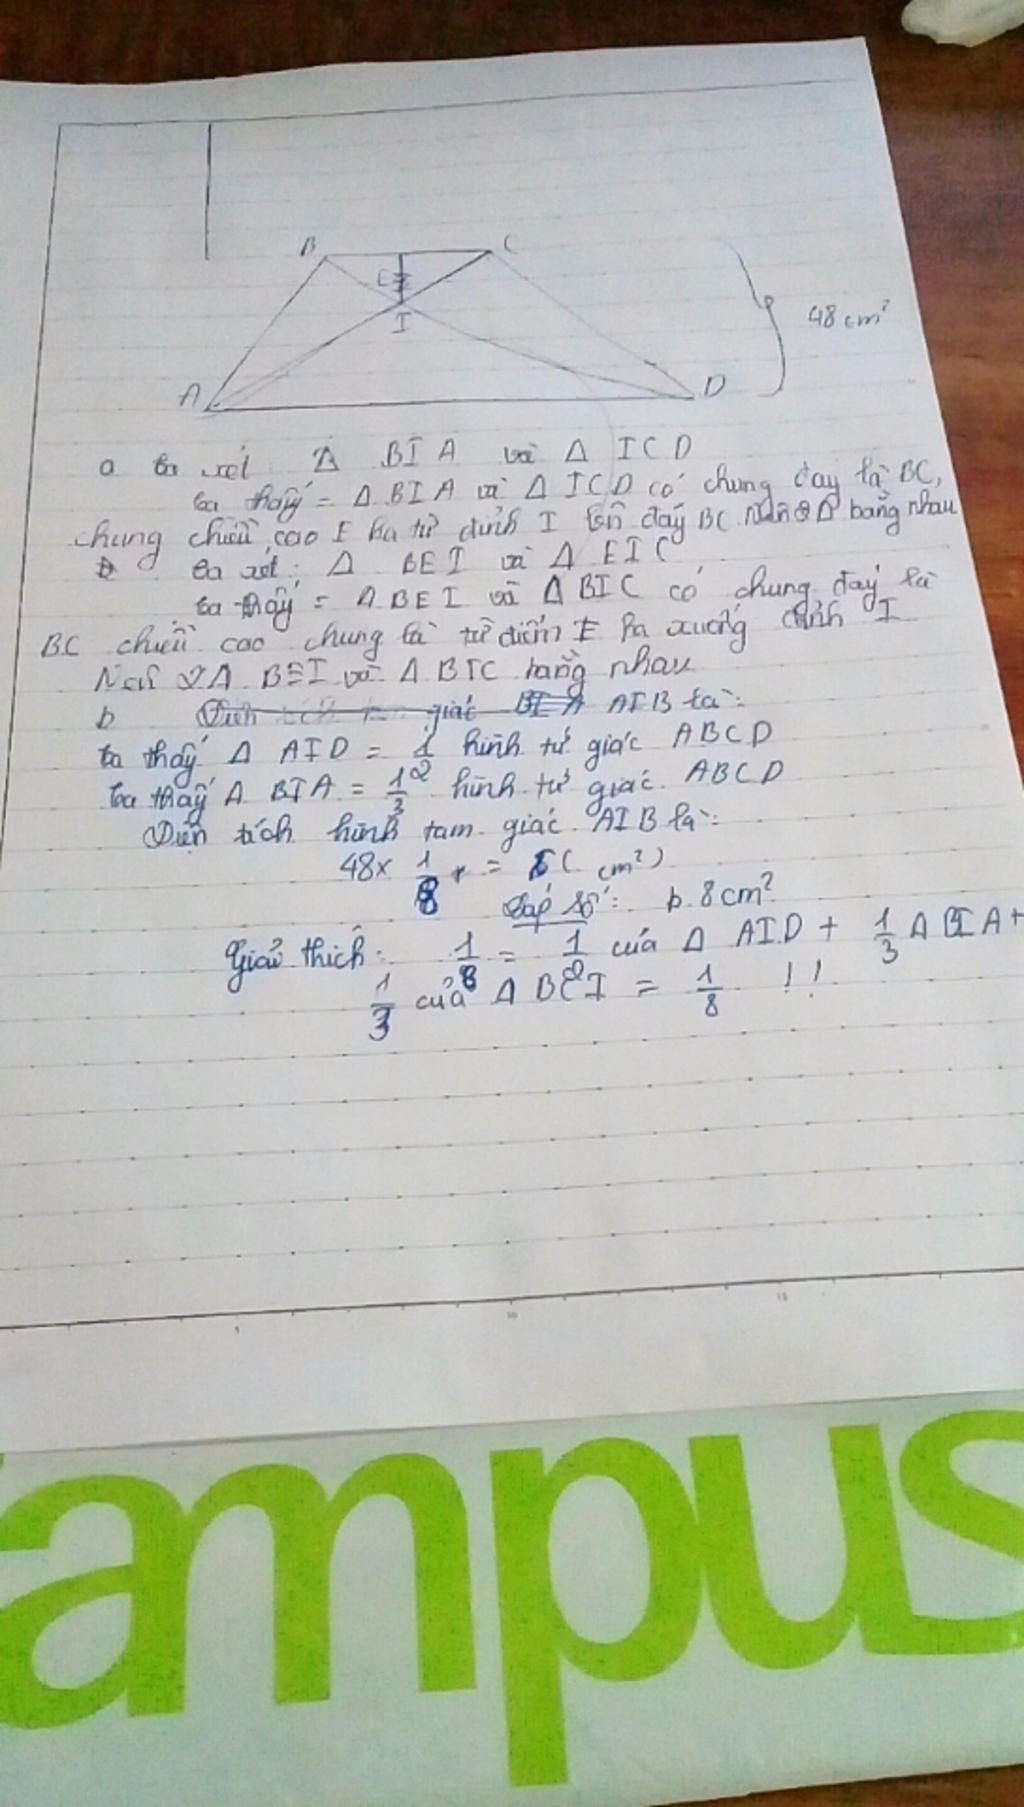 B C
E
I
48 cm²
A D
a ta xét Δ BIA và Δ ICD
ta thấy = Δ BIA và Δ ICD có chung đay là BC,
chung chiều cao E hạ từ đỉnh I lên đáy BC Δ bằng nhau
ta xét: Δ BEI và Δ EIC
ta thấy = Δ BEI và Δ BIC có chung đay là
BC chiều cao chung là từ điểm E hạ xuống đỉnh I
Nên Δ BEI và Δ BIC bằng nhau
b giác AIB là:
ta thấy Δ AID = 1/2 hình tứ giác ABCD
ta thấy Δ BIA = 1/3 hình tứ giác ABCD
Diện tích hình tam giác AIB là:
48 x 1/8 = ( cm²)
Đáp số: b. 8 cm²
Giải thích: 1/8 = 1/2 của Δ AID + 1/3 Δ BIA +
1/3 của Δ BEI = 1/8 !!
5 10 15
ampus